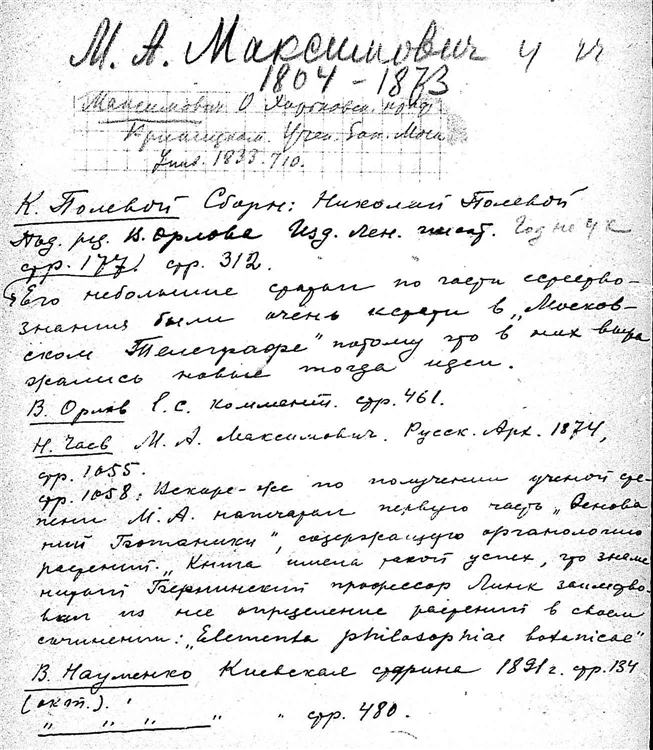 М. А. Максимович
1804 – 1873
Максимович О Харьковск. проф.
Криницком. Учен. Зап. Моск
Унив. 1833. №10.
К. Полевой Сборн: Николай Полевой
Под. ред. В. Орлова Изд. Лен. писат. Год не ук
стр. 177! стр. 312.
Его небольшие статьи по части естество-
знания были очень кстати в „Москов-
ском Телеграфе" потому что в них выра
жались новые тогда идеи.
В. Орлов l.c. Коммент. стр. 461.
Н. Чаев М. А. Максимович. Русск. Арх. 1874,
стр. 1055.
стр. 1058: Вскоре-же по получении ученой сте-
пени М. А. напечатал первую часть „Основа
ний Ботаники", содержащую органологию
растений. „Книга имела такой успех, что знаме
нитый Берлинский профессор Линк заимство-
вал из нее определение растений в своем
сочинении: „Elementa philosophiae botanicae"
В. Науменко Киевская старина 1891 г. стр. 134
(окт.).
„ „ „ „ стр. 480.